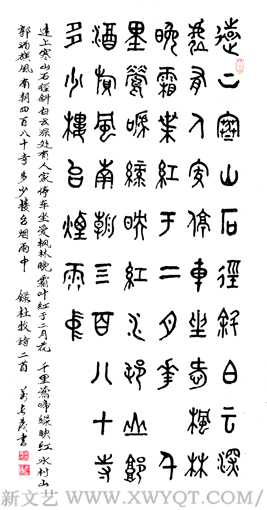 遠上寒山石徑斜白云深
處有人家停車坐愛楓林
晚霜葉紅于二月花千
里鶯啼綠映紅水邨山郭
酒旗風南朝四百八十寺
多少樓台煙雨中
远上寒山石径斜白云深处有人家停车坐爱枫林晚霜叶红于二月花 千里莺啼绿映红水村山
郭酒旗风南朝四百八十寺多少楼台烟雨中 録杜牧诗二首 书
新文艺 · WWW.XWYQT.COM/